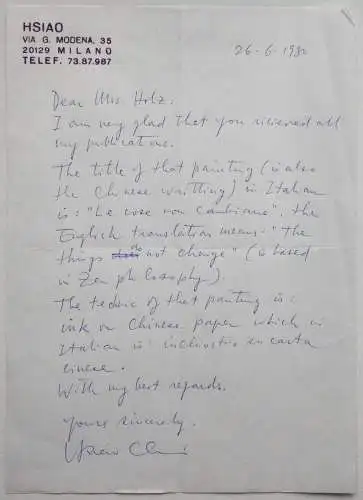 HSIAO
VIA G. MODENA, 35
20129 MILANO
TELEF. 73.87.987
26-6-1980
Dear Mrs. Holz.
I am very glad that you recieved all
my publications.
The title of that painting (is also
the Chinese writting) in Italian
is: "Le cose non cambiano", the
English translation means "The
things do not change" (is based
in Zen philosophy).
The technic of that painting is:
ink on Chinese paper which in
Italian is: inchiostro su carta
cinese.
With my best regards.
Yours sincerely.
Hsiao Chin